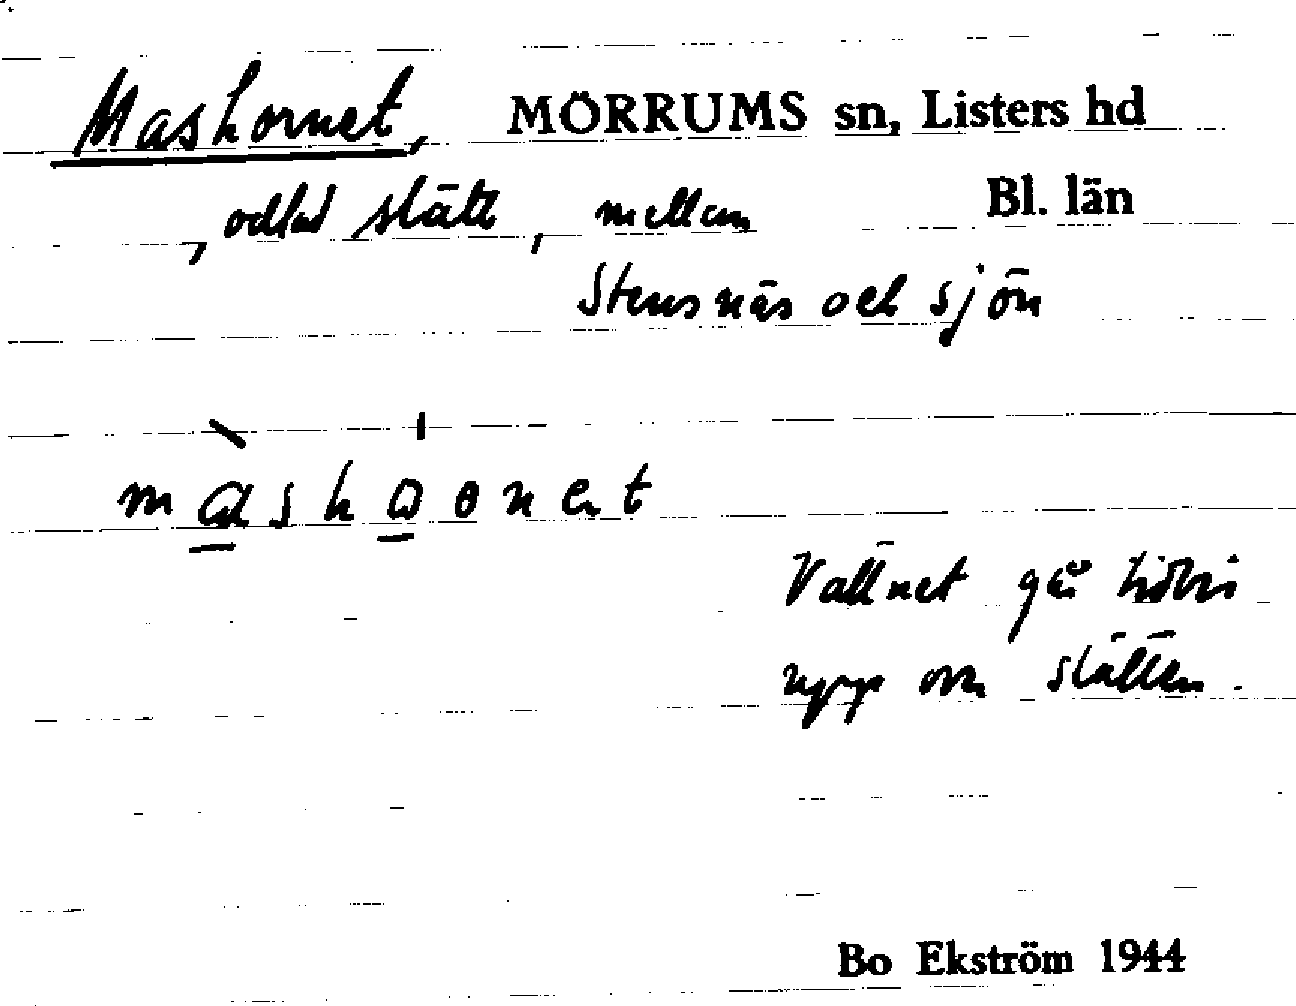 Mashornet, MÖRRUMS sn, Listers hd
, odlad slätt, mellan Bl. län
Stensnäs och sjön
Vattnet går
upp om slätten.
Bo Ekström 1944